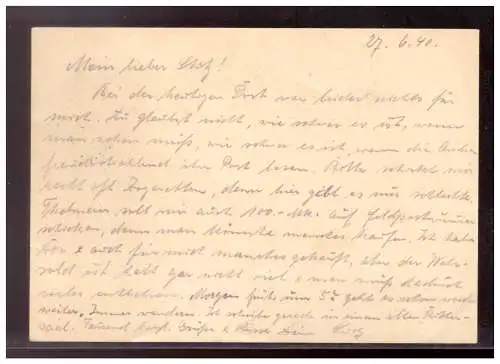 27. 6. 40.
Mein lieber Schatz!
Bei der heutigen Post war leider nichts für
mich. Du glaubst nicht, wie schwer es ist, wenn
man sehen muß, wie schwer es ist, wenn die Andern
freudestrahlend ihre Post lesen. Bitte schickt mir
recht oft Zigaretten, denn hier gibt es nur schlechte.
soll mir auch 100.- Mk. auf
schicken, denn man könnte manches kaufen. Ich habe
auch für mich manches gekauft, aber der Wehr-
sold ist halt gar nicht viel u man muß dadurch
vieles entbehren. Morgen früh um 5 h geht es schon wieder
weiter. Immer wandern. Ich schreibe gerade in einem alten Ritter-
saal. Tausend herzl. Grüße u Küsse Dein